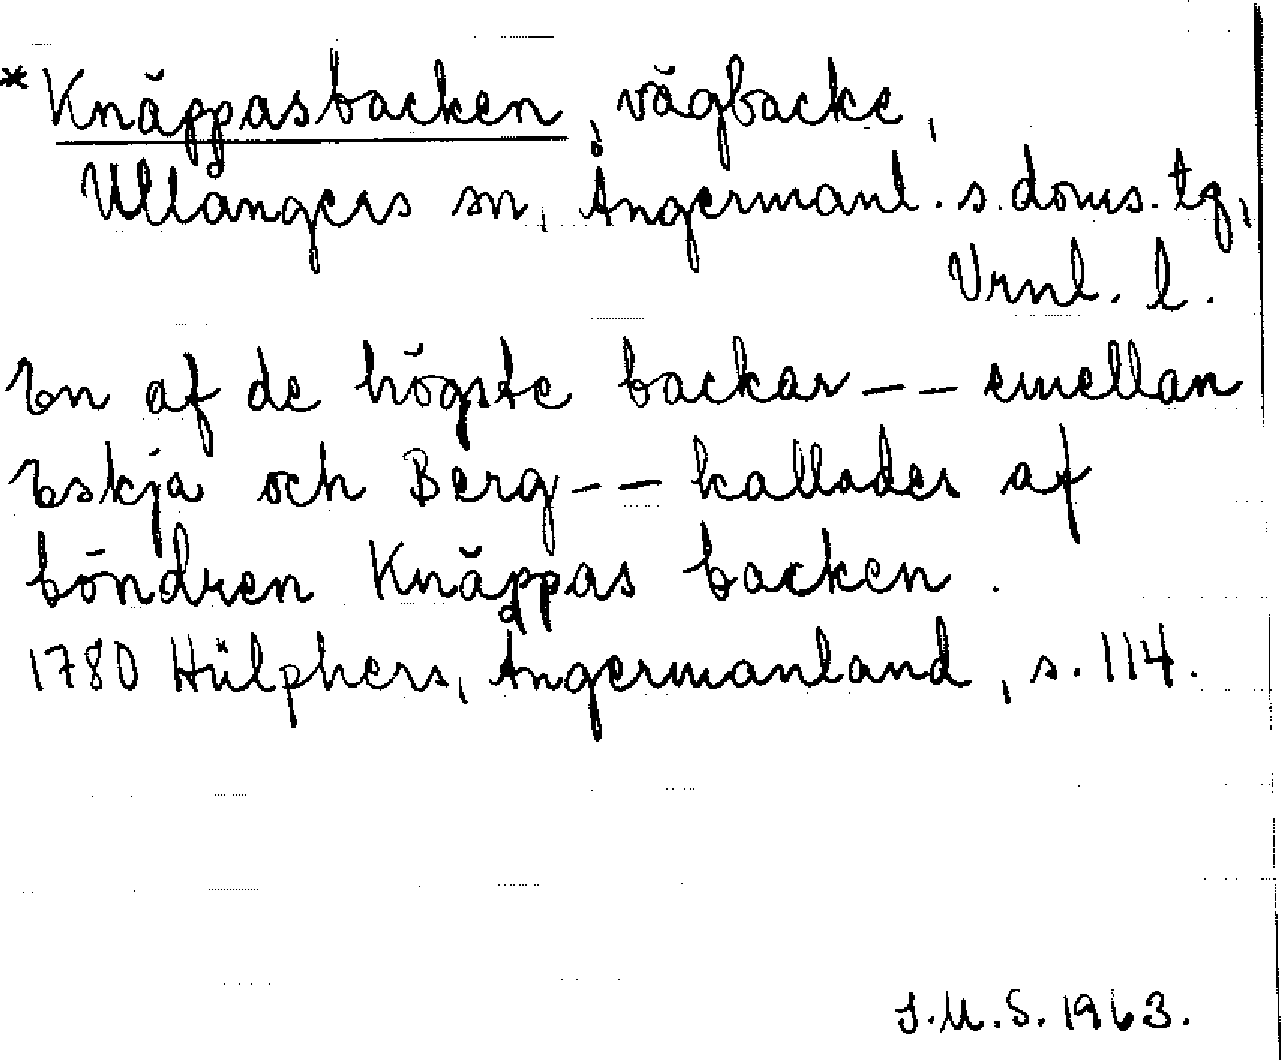 * Knäppasbacken, vägbacke,
Ullångers sn, Ångermanl. s. doms. tg,
Vrnl. l.
En af de högste backar – – emellan
Eskja och Berg – – kallades af
böndren Knäppas backen.
1780 Hülphers, Ångermanland, s. 114.
J.M.S. 1963.